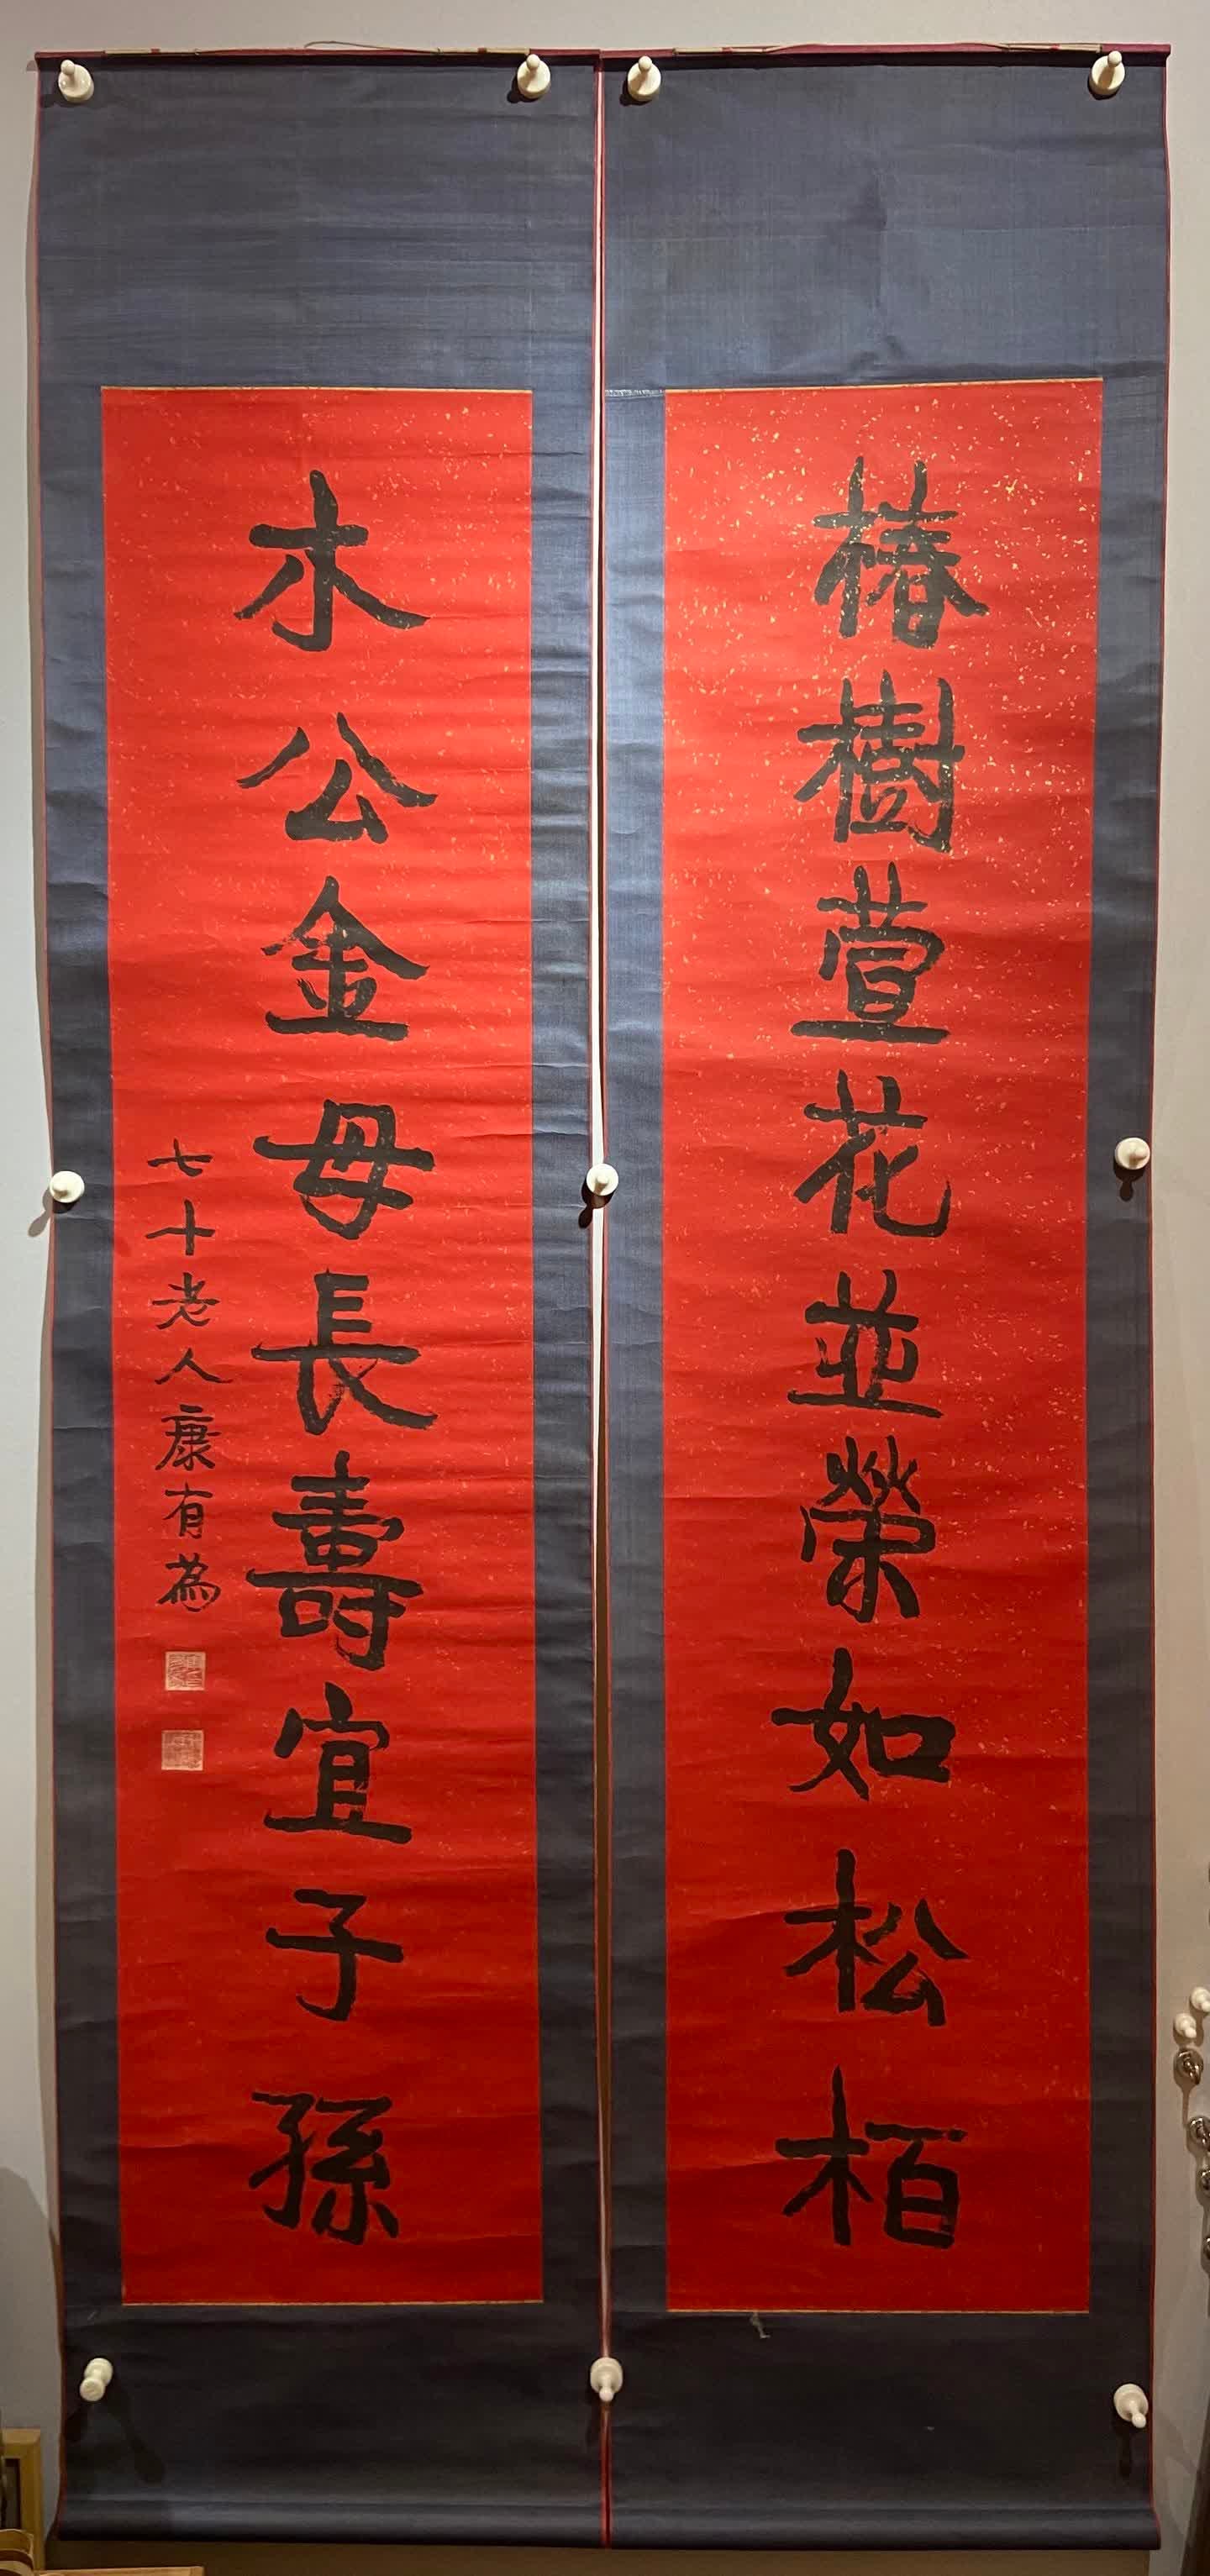 椿樹萱花並榮如松柏
木公金母長壽宜子孫
七十老人康有為